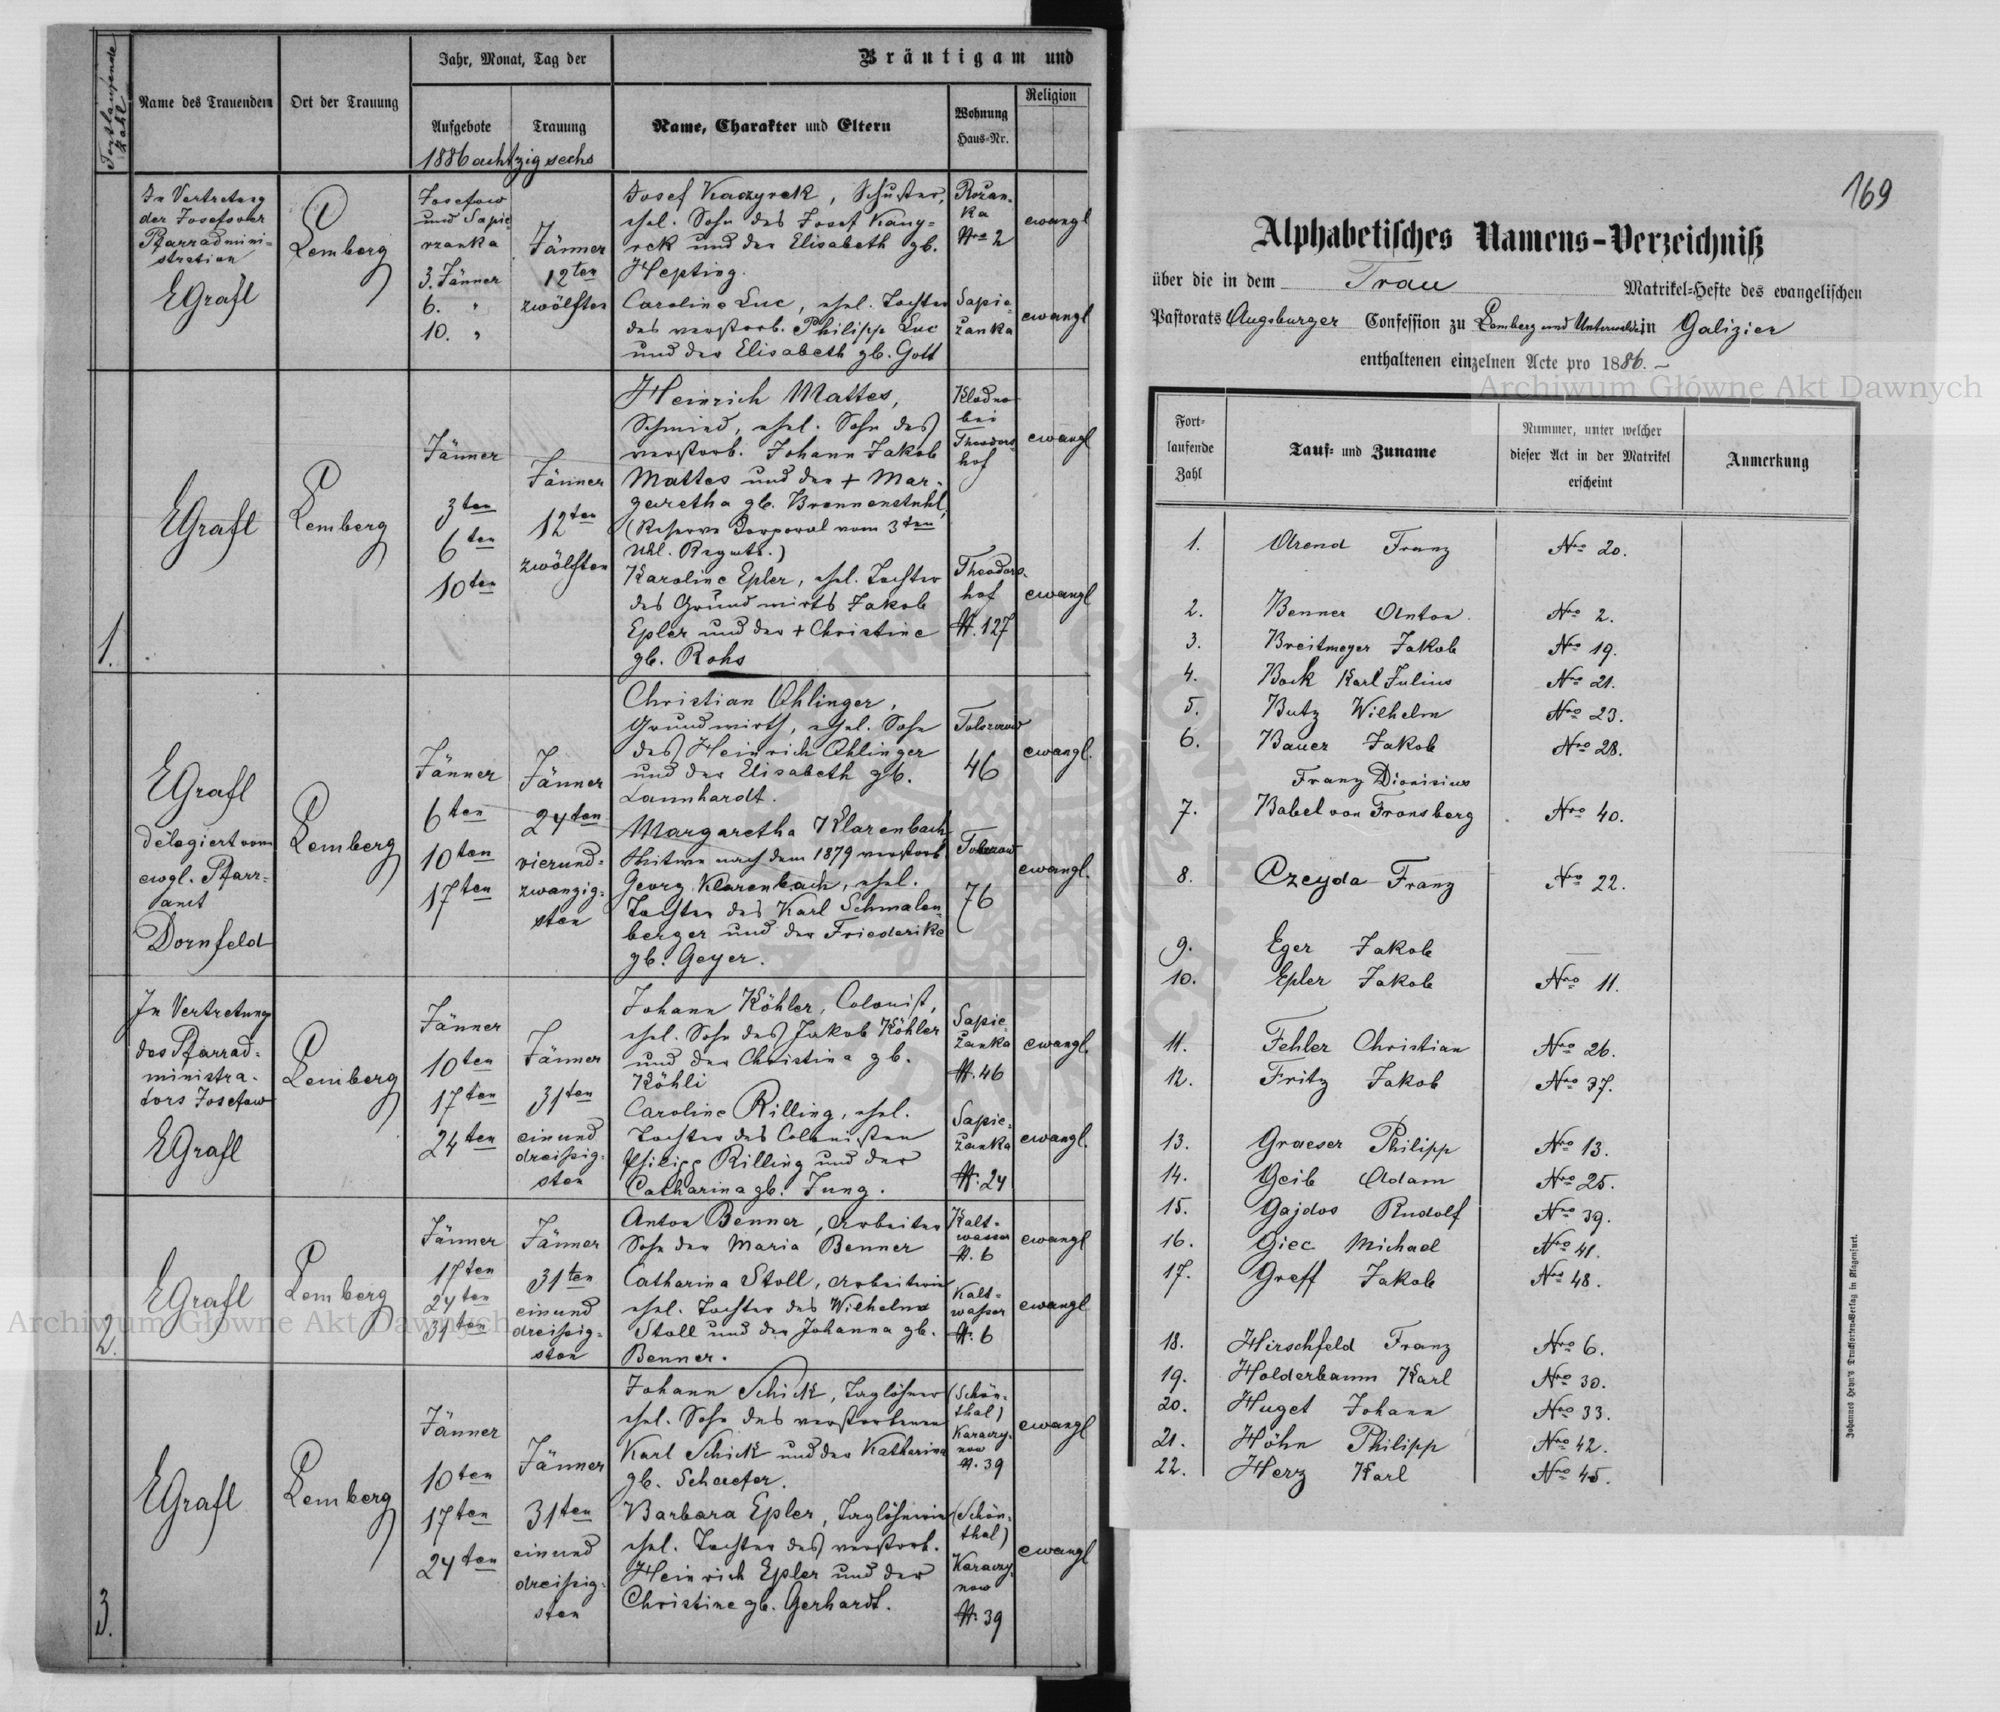 Fortlaufende Zahl
Name des Trauenden
Ort der Trauung
Jahr, Monat, Tag der
Aufgebote
Trauung
1886 achtzig sechs
Bräutigam und
Name, Charakter und Eltern
Wohnung
Haus-Nr.
Religion
In Vertretung
der Josefower
Pfarradmini-
stration
EGrafl
Lemberg
Josefow
und Sapie-
rzanka
3. Jänner
6. "
10. "
Jänner
12ten
zwölften
Josef Kaczyrek, Schuster,
ehel. Sohn des Josef Kany-
rek und der Elisabeth gb.
Hepting.
Caroline Luc, ehel. Tochter
des verstorb. Philipp Luc
und der Elisabeth gb. Gott
Rozan-
ka
Nro 2
Sapie-
zanka
ewangl
ewangl
1.
EGrafl
Lemberg
Jänner
3ten
6ten
10ten
Jänner
12ten
zwölften
Heinrich Mattes,
Schmied, ehel. Sohn des
verstorb. Johann Jakob
Mattes und der + Mar-
garetha gb. Brennenstuhl,
(Reserve Corporal vom 3ten
Uhl. Regmts.)
Karoline Epler, ehel. Tochter
des Grundwirts Jakob
Epler und der + Christine
gb. Rohs
Kłodno
bei
Theodors-
hof
Theodors-
hof
N. 127
ewangl
ewangl
EGrafl
delegiert vom
ewgl. Pfarr-
amt
Dornfeld
Lemberg
Jänner
6ten
10ten
17ten
Jänner
24ten
vierund-
zwanzig-
sten
Christian Ohlinger,
Grundwirth, ehel. Sohn
des Heinrich Ohlinger
und der Elisabeth gb.
Lannhardt.
Margaretha Klarenbach
Witwe nach dem 1879 verstorb.
Georg Klarenbach, ehel.
Tochter des Karl Schmalen-
berger und der Friederike
gb. Geyer.
Tolszczow
46
76
ewangl.
ewangl.
In Vertretung
des Pfarrad-
ministra-
tors Josefow
EGrafl
Lemberg
Jänner
10ten
17ten
24ten
Jänner
31ten
einund
dreißig-
sten
Johann Köhler, Colonist,
ehel. Sohn des Jakob Köhler
und der Christina gb.
Köhli
Caroline Rilling, ehel.
Tochter des Colonisten
Philipp Rilling und der
Catharina gb. Jung.
Sapie-
zanka
N. 46
Sapie-
zanka
N. 24
ewangl.
ewangl.
2.
EGrafl
Lemberg
Jänner
17ten
24ten
31ten
Jänner
31ten
einund
dreißig-
sten
Anton Benner, Arbeiter
Sohn der Maria Benner
Catharina Stoll, Arbeiterin
ehel. Tochter des Wilhelm
Stoll und der Johanna gb.
Benner.
Kalt-
wasser
N. 6
Kalt-
wasser
N. 6
ewangl
ewangl
3.
EGrafl
Lemberg
Jänner
10ten
17ten
24ten
Jänner
31ten
einund
dreißig-
sten
Johann Schick, Taglöhner
ehel. Sohn des verstorbenen
Karl Schick und der Katharina
gb. Schaefer.
Barbara Epler, Taglöhnerin
ehel. Tochter des verstorb.
Heinrich Epler und der
Christine gb. Gerhardt.
(Schön-
thal)
Karaczy-
now
N. 39
(Schön-
thal)
Karaczy-
now
N. 39
ewangl
ewangl
169
Alphabetisches Namens-Verzeichniß
über die in dem Trau Matrikel-Hefte des evangelischen
Pastorats Augsburger Confession zu Lemberg und Unterwalden in Galizien
enthaltenen einzelnen Acte pro 1886.
Archiwum Główne Akt Dawnych
Fort-
laufende
Zahl
Tauf- und Zuname
Nummer, unter welcher
dieser Act in der Matrikel
erscheint
Anmerkung
1. Arend Franz Nro 20.
2. Benner Anton Nro 2.
3. Breitmeyer Jakob Nro 19.
4. Bock Karl Julius Nro 21.
5. Butz Wilhelm Nro 23.
6. Bauer Jakob Nro 28.
Franz Dionisius
7. Babel von Fronsberg Nro 40.
8. Czeyda Franz Nro 22.
9. Eger Jakob
10. Epler Jakob Nro 11.
11. Fehler Christian Nro 26.
12. Fritz Jakob Nro 37.
13. Graeser Philipp Nro 13.
14. Geib Adam Nro 25.
15. Gajdos Rudolf Nro 39.
16. Giec Michael Nro 41.
17. Greff Jakob Nro 48.
18. Hirschfeld Franz Nro 6.
19. Holderbaum Karl Nro 30.
20. Huget Johann Nro 33.
21. Höhn Philipp Nro 42.
22. Herz Karl Nro 45.
Johannes Heyn's Drucksorten-Verlag in Klagenfurt.
Archiwum Główne Akt Dawnych